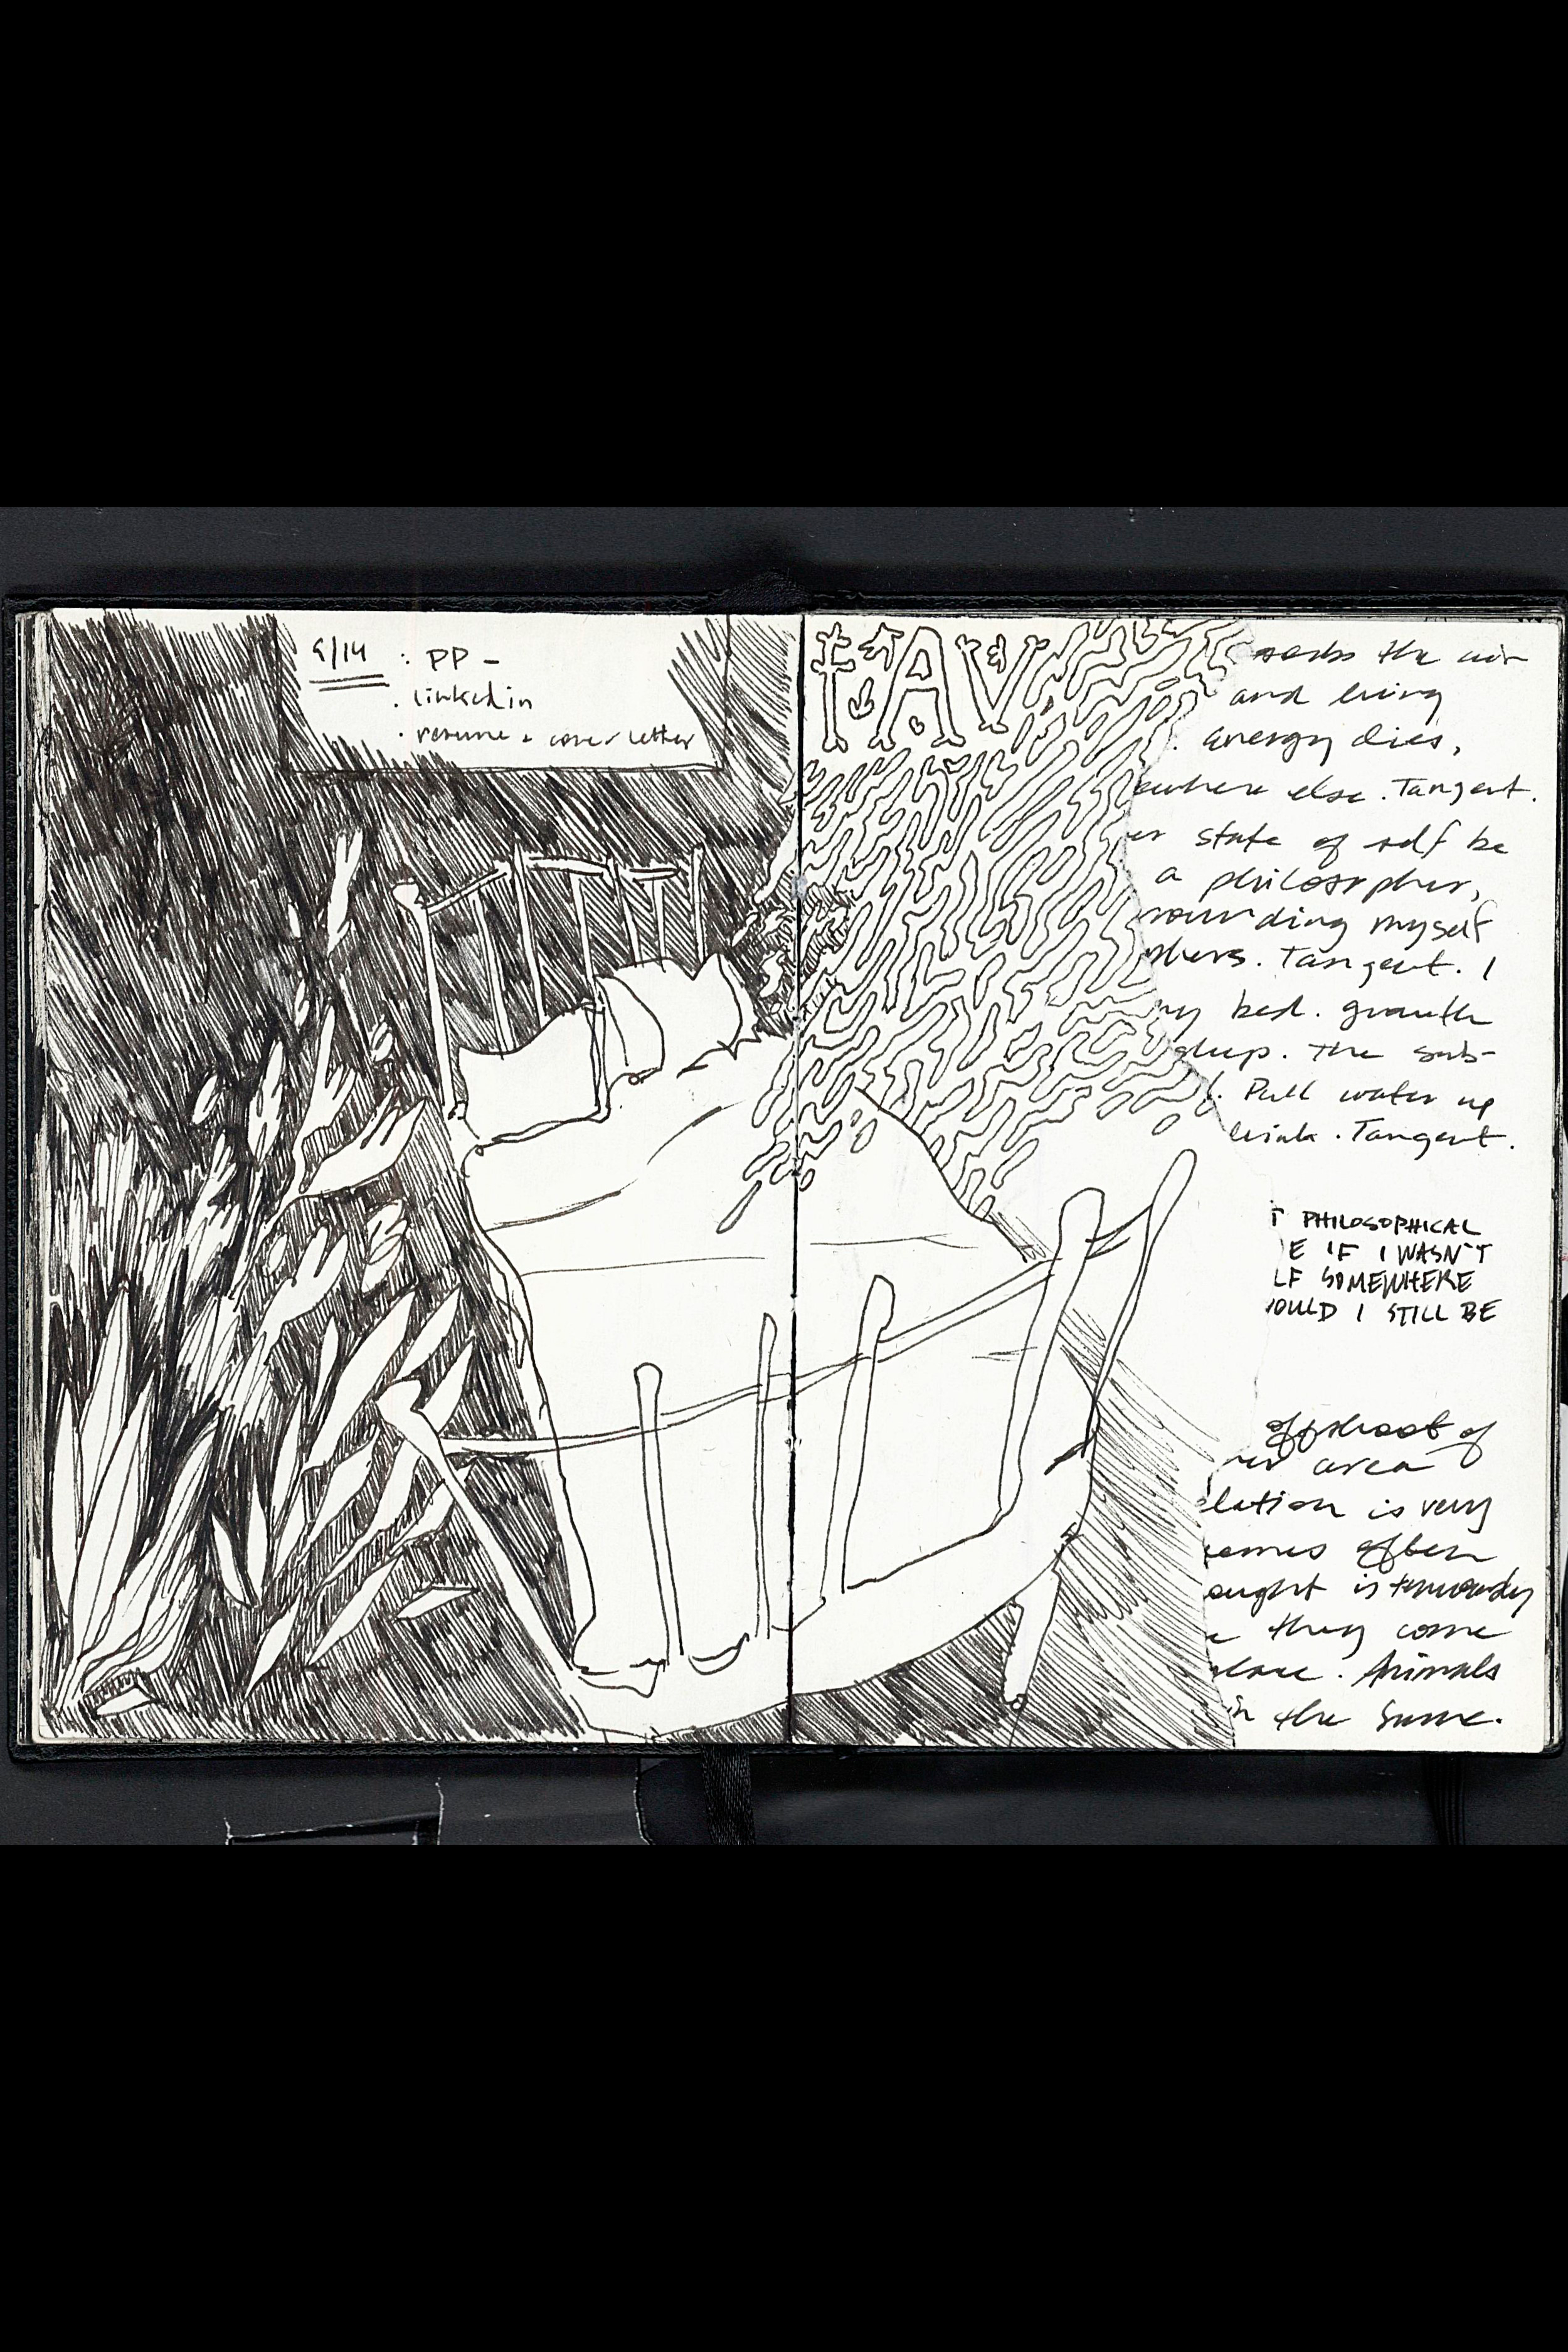 9/14 · PP -
· linkedin
· resume + cover letter
FAV
the air
and living
energy dies,
ewhere else. Tangent.
er state of self be
a philosopher,
rounding myself
phers. Tangent. I
my bed. growth
The sub-
. Pull water up
drink. Tangent.
T PHILOSOPHICAL
E IF I WASN'T
LF SOMEWHERE
OULD I STILL BE
offshoot of
area
lation is very
comes often
ought is
they come
place. Animals
in the same.